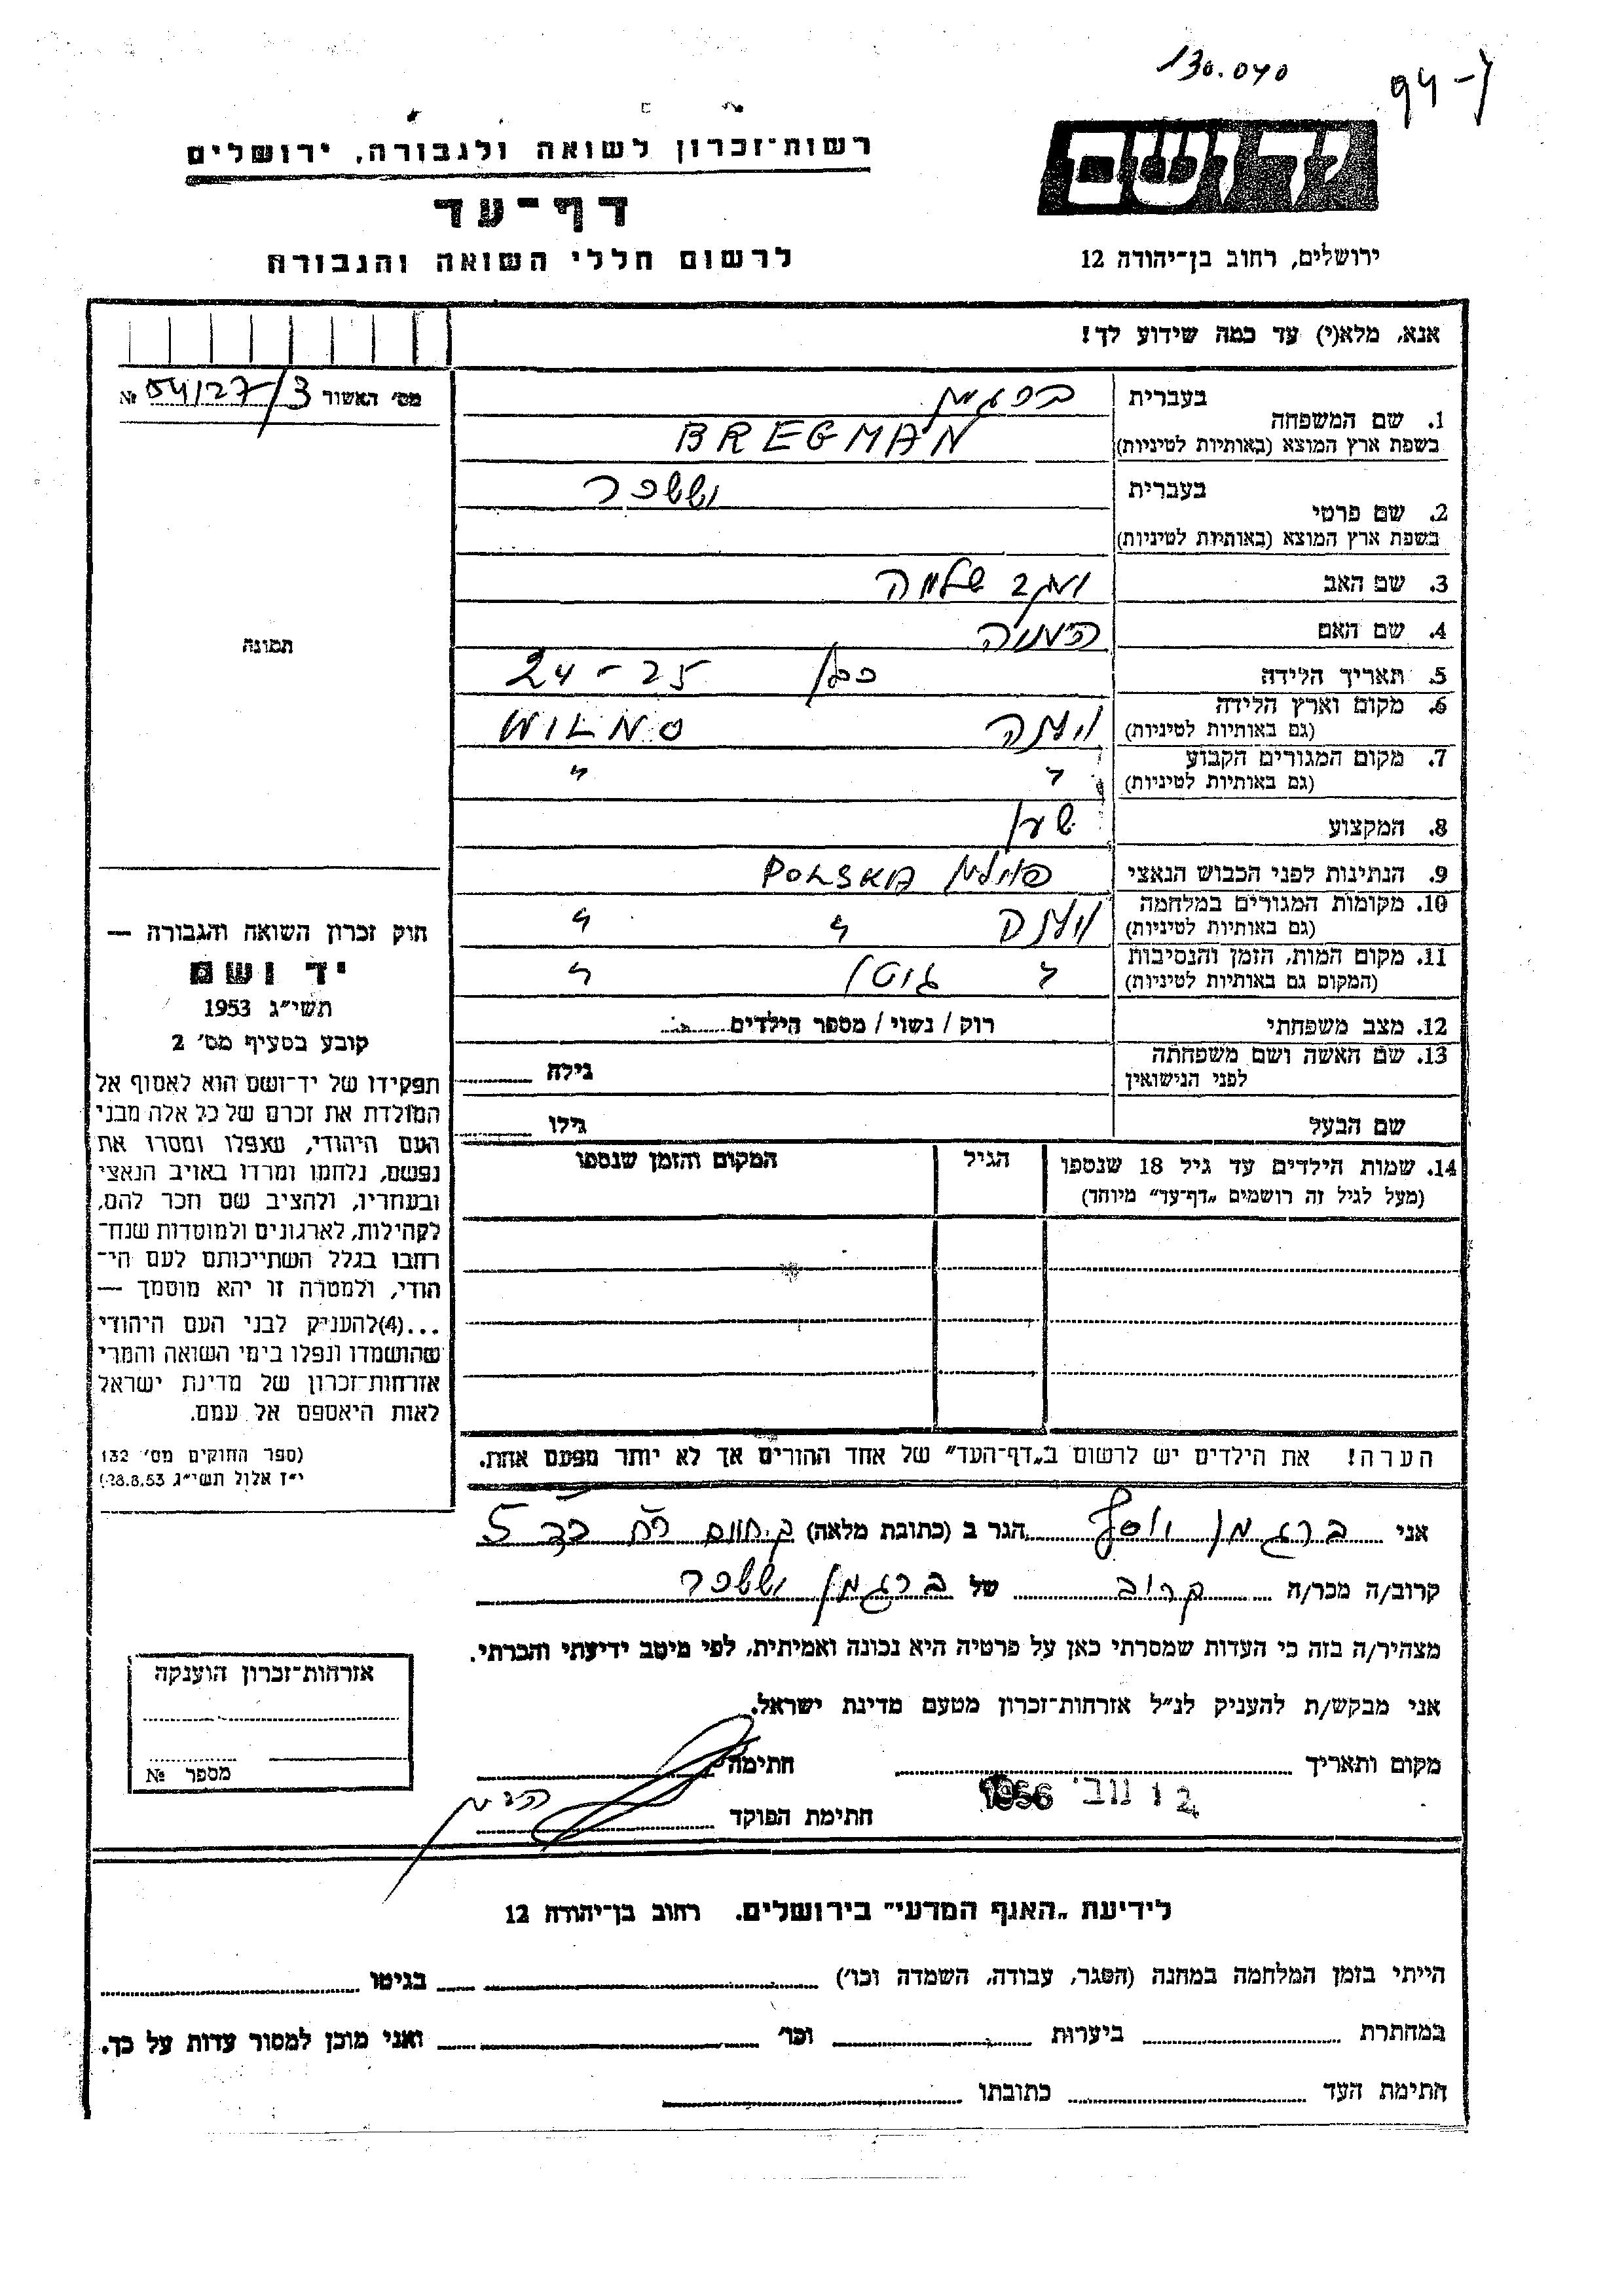 130.040
94-7
יד ושם
רשות־זכרון לשואה ולגבורה, ירושלים
דף־עד
לרשום חללי השואה והגבורה
ירושלים, רחוב בן־יהודה 12
אנא, מלא(י) עד כמה שידוע לך!
מס׳ האשור 54127/3 №
1. שם המשפחה
בעברית ברגמן
בשפת ארץ המוצא (באותיות לטיניות) BREGMAN
2. שם פרטי
בעברית
בשפת ארץ המוצא (באותיות לטיניות)
3. שם האב יעקב שלמה
4. שם האם
תמונה
5. תאריך הלידה 24 - 25
6. מקום וארץ הלידה וילנה WILNO
(גם באותיות לטיניות)
7. מקום המגורים הקבוע " "
(גם באותיות לטיניות)
8. המקצוע שען
9. הנתינות לפני הכבוש הנאצי פולין POLSKA
10. מקומות המגורים במלחמה וילנה " "
(גם באותיות לטיניות)
11. מקום המות, הזמן והנסיבות " גיטו "
(המקום גם באותיות לטיניות)
12. מצב משפחתי רוק / נשוי / מספר הילדים
13. שם האשה ושם משפחתה גילה
לפני הנישואין
שם הבעל גילו
14. שמות הילדים עד גיל 18 שנספו הגיל המקום והזמן שנספו
(מעל לגיל זה רושמים „דף־עד״ מיוחד)
חוק זכרון השואה והגבורה —
יד ושם
תשי״ג 1953
קובע בסעיף מס׳ 2
תפקידו של יד־ושם הוא לאסוף אל
המולדת את זכרם של כל אלה מבני
העם היהודי, שנפלו ומסרו את
נפשם, נלחמו ומרדו באויב הנאצי
ובעוזריו, ולהציב שם וזכר להם,
לקהילות, לארגונים ולמוסדות שנח־
רחבו בגלל השתייכותם לעם הי־
הודי, ולמטרה זו יהא מוסמך —
...(4)להעניק לבני העם היהודי
שהושמדו ונפלו בימי השואה והמרי
אזרחות־זכרון של מדינת ישראל
לאות היאספם אל עמם.
(ספר החוקים מס׳ 132
י״ז אלול תשי״ג 28.8.53)
הערה! את הילדים יש לרשום ב„דף־העד״ של אחד ההורים אך לא יותר מפעם אחת.
אני ברגמן יוסף הגר ב (כתובת מלאה) 5
קרוב/ה מכר/ה קרוב של ברגמן
מצהיר/ה בזה כי העדות שמסרתי כאן על פרטיה היא נכונה ואמיתית, לפי מיטב ידיעתי והכרתי.
אני מבקש/ת להעניק לנ״ל אזרחות־זכרון מטעם מדינת ישראל.
מקום ותאריך חתימה
12 נוב׳ 1956
חתימת הפוקד
אזרחות־זכרון הוענקה
מספר №
לידיעת „האגף המדעי״ בירושלים. רחוב בן־יהודה 12
הייתי בזמן המלחמה במחנה (הסגר, עבודה, השמדה וכו׳) בגיטו
במחתרת ביערות וכו׳ ואני מוכן למסור עדות על כך.
חתימת העד כתובתו